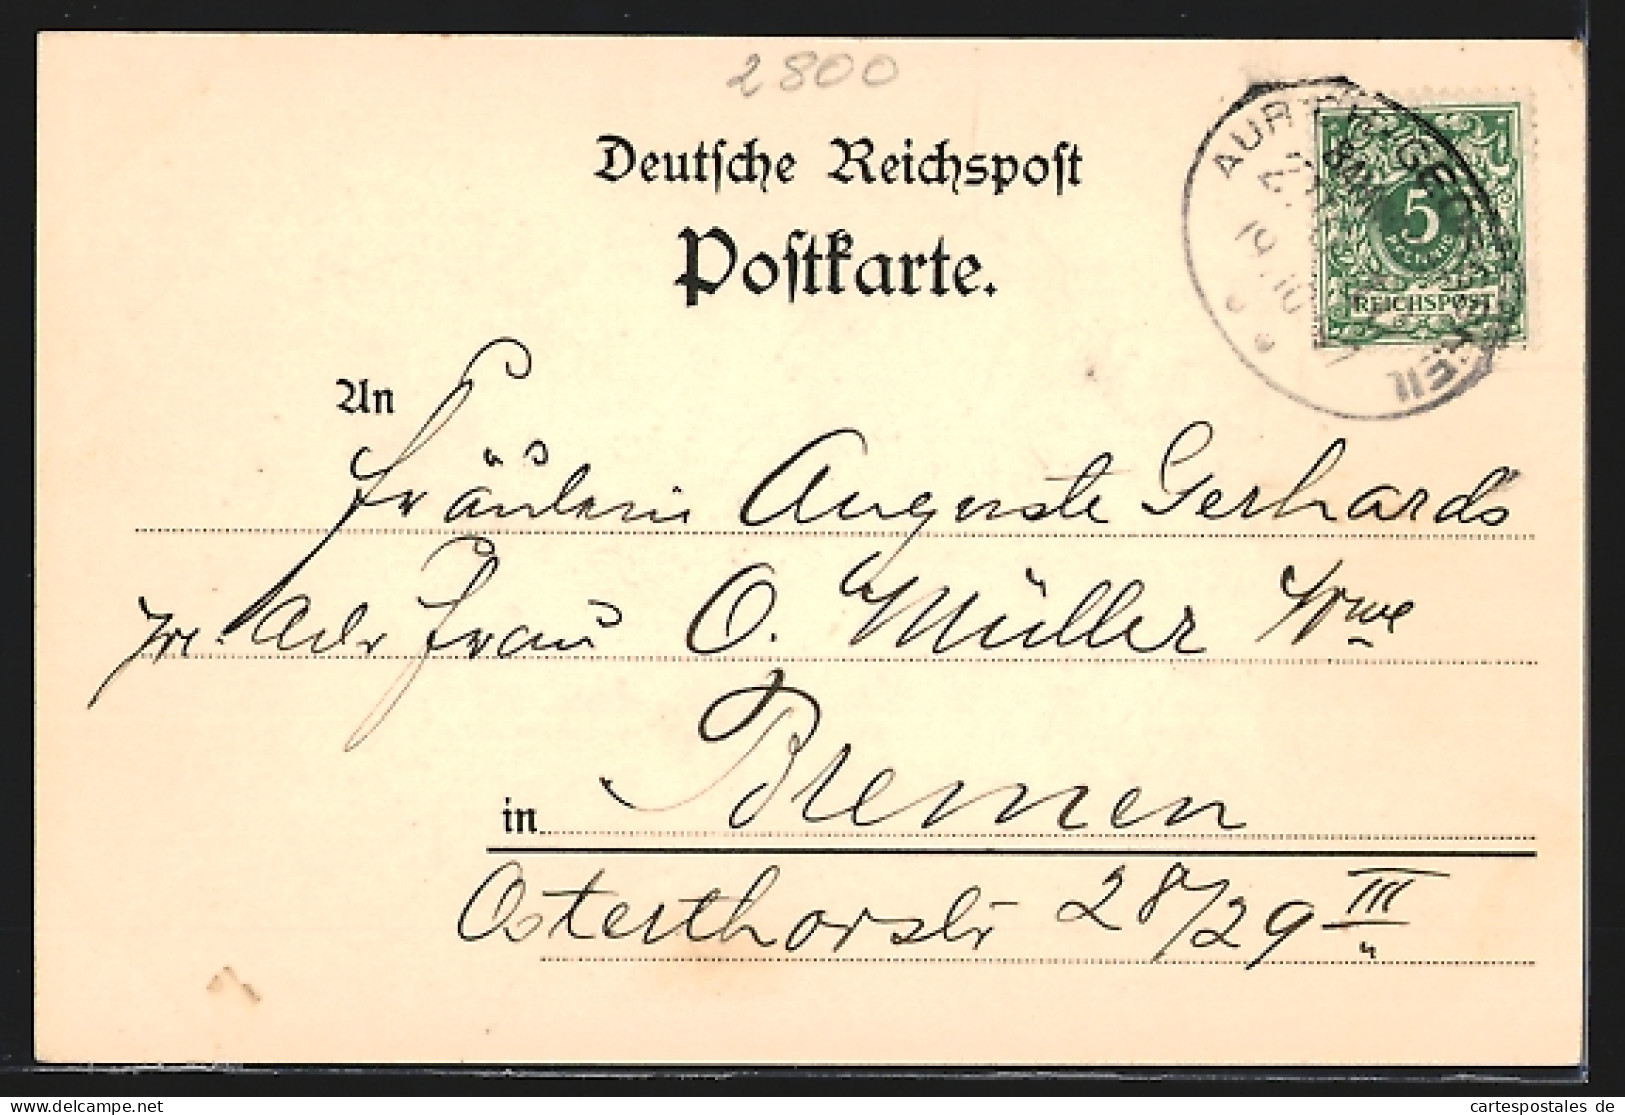 2800
Deutsche Reichspost
Postkarte.
5
PFENNIG
REICHSPOST
An
Fräulein Auguste Gerhards
pr. Adr Frau O. Müller Wwe
in Bremen
Osterthorstr 28/29 III
cartespostales.de